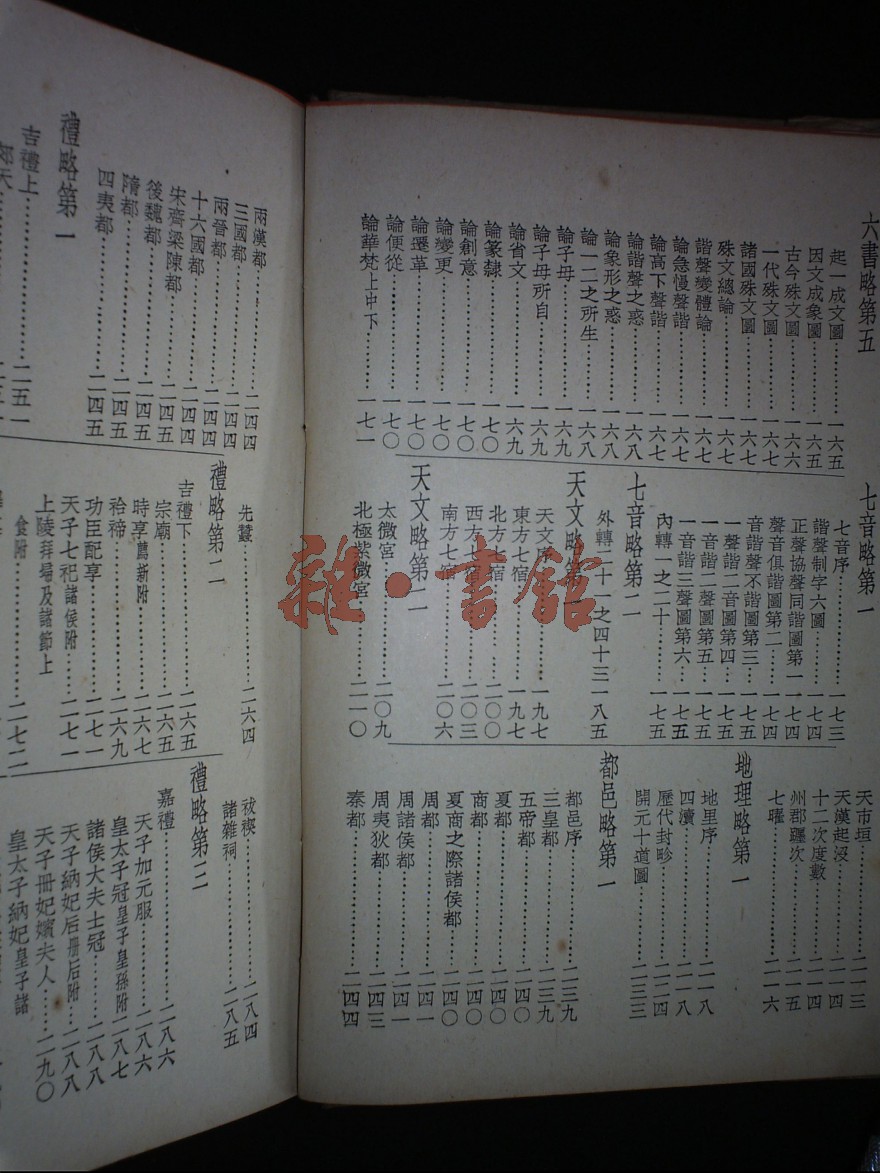 六書略第五
起一成文圖…一六五
因文成象圖…一六五
古今殊文圖…一六六
一代殊文圖…一六七
諸國殊文圖…一六七
殊文總論…一六七
諧聲變體論…一六七
論急慢聲諧…一六七
論高下聲諧…一六七
論諧聲之惑…一六八
論象形之惑…一六八
論一二之所生…一六八
論子母…一六九
論子母所自…一六九
論省文…一六九
論篆隸…一七〇
論創意…一七〇
論變更…一七〇
論遷革…一七〇
論便從…一七〇
論華梵上中下…一七一
七音略第一
七音序…一七三
諧聲制字六圖…一七四
正聲協聲同諧圖第一一七四
聲音俱諧圖第二…一七四
音諧聲不諧圖第三…一七五
一聲諧二音圖第四…一七五
一音諧二聲圖第五…一七五
一音諧三聲圖第六…一七五
內轉一之二十…一七五
七音略第二
外轉二十一之四十三一八五
天文略第一
天文序…一九七
東方七宿…一九七
北方七宿…二〇〇
西方七宿…二〇三
南方七宿…二〇六
天文略第二
太微宮…二〇九
北極紫微宮…二一〇
天市垣…二一三
天漢起沒…二一四
十二次度數…二一四
州郡躔次…二一五
七曜…二一六
地理略第一
地里序…二一八
四瀆…二一八
歷代封畛…二二四
開元十道圖…二三三
都邑略第一
都邑序…二三九
三皇都…二三九
五帝都…二四〇
夏都…二四〇
商都…二四〇
夏商之際諸侯都…二四〇
周都…二四一
周諸侯都…二四一
周夷狄都…二四三
秦都…二四四
兩漢都…二四四
三國都…二四四
兩晉都…二四四
十六國都…二四四
宋齊梁陳都…二四五
後魏都…二四五
隋都…二四五
四夷都…二四五
禮略第一
吉禮上…二五一
先蠶…二六四
禮略第二
吉禮下…二六五
宗廟…二六五
時享薦新附…二六七
祫禘…二六九
功臣配享…二七一
天子七祀諸侯附…二七一
上陵拜埽及諸節上
食附…二七二
祓禊…二八四
諸雜祠…二八五
禮略第三
嘉禮…二八六
天子加元服…二八六
皇太子冠皇子皇孫附二八七
諸侯大夫士冠…二八八
天子納妃后冊后附…二八八
天子冊妃嬪夫人…二九〇
皇太子納妃皇子諸
雜·書館